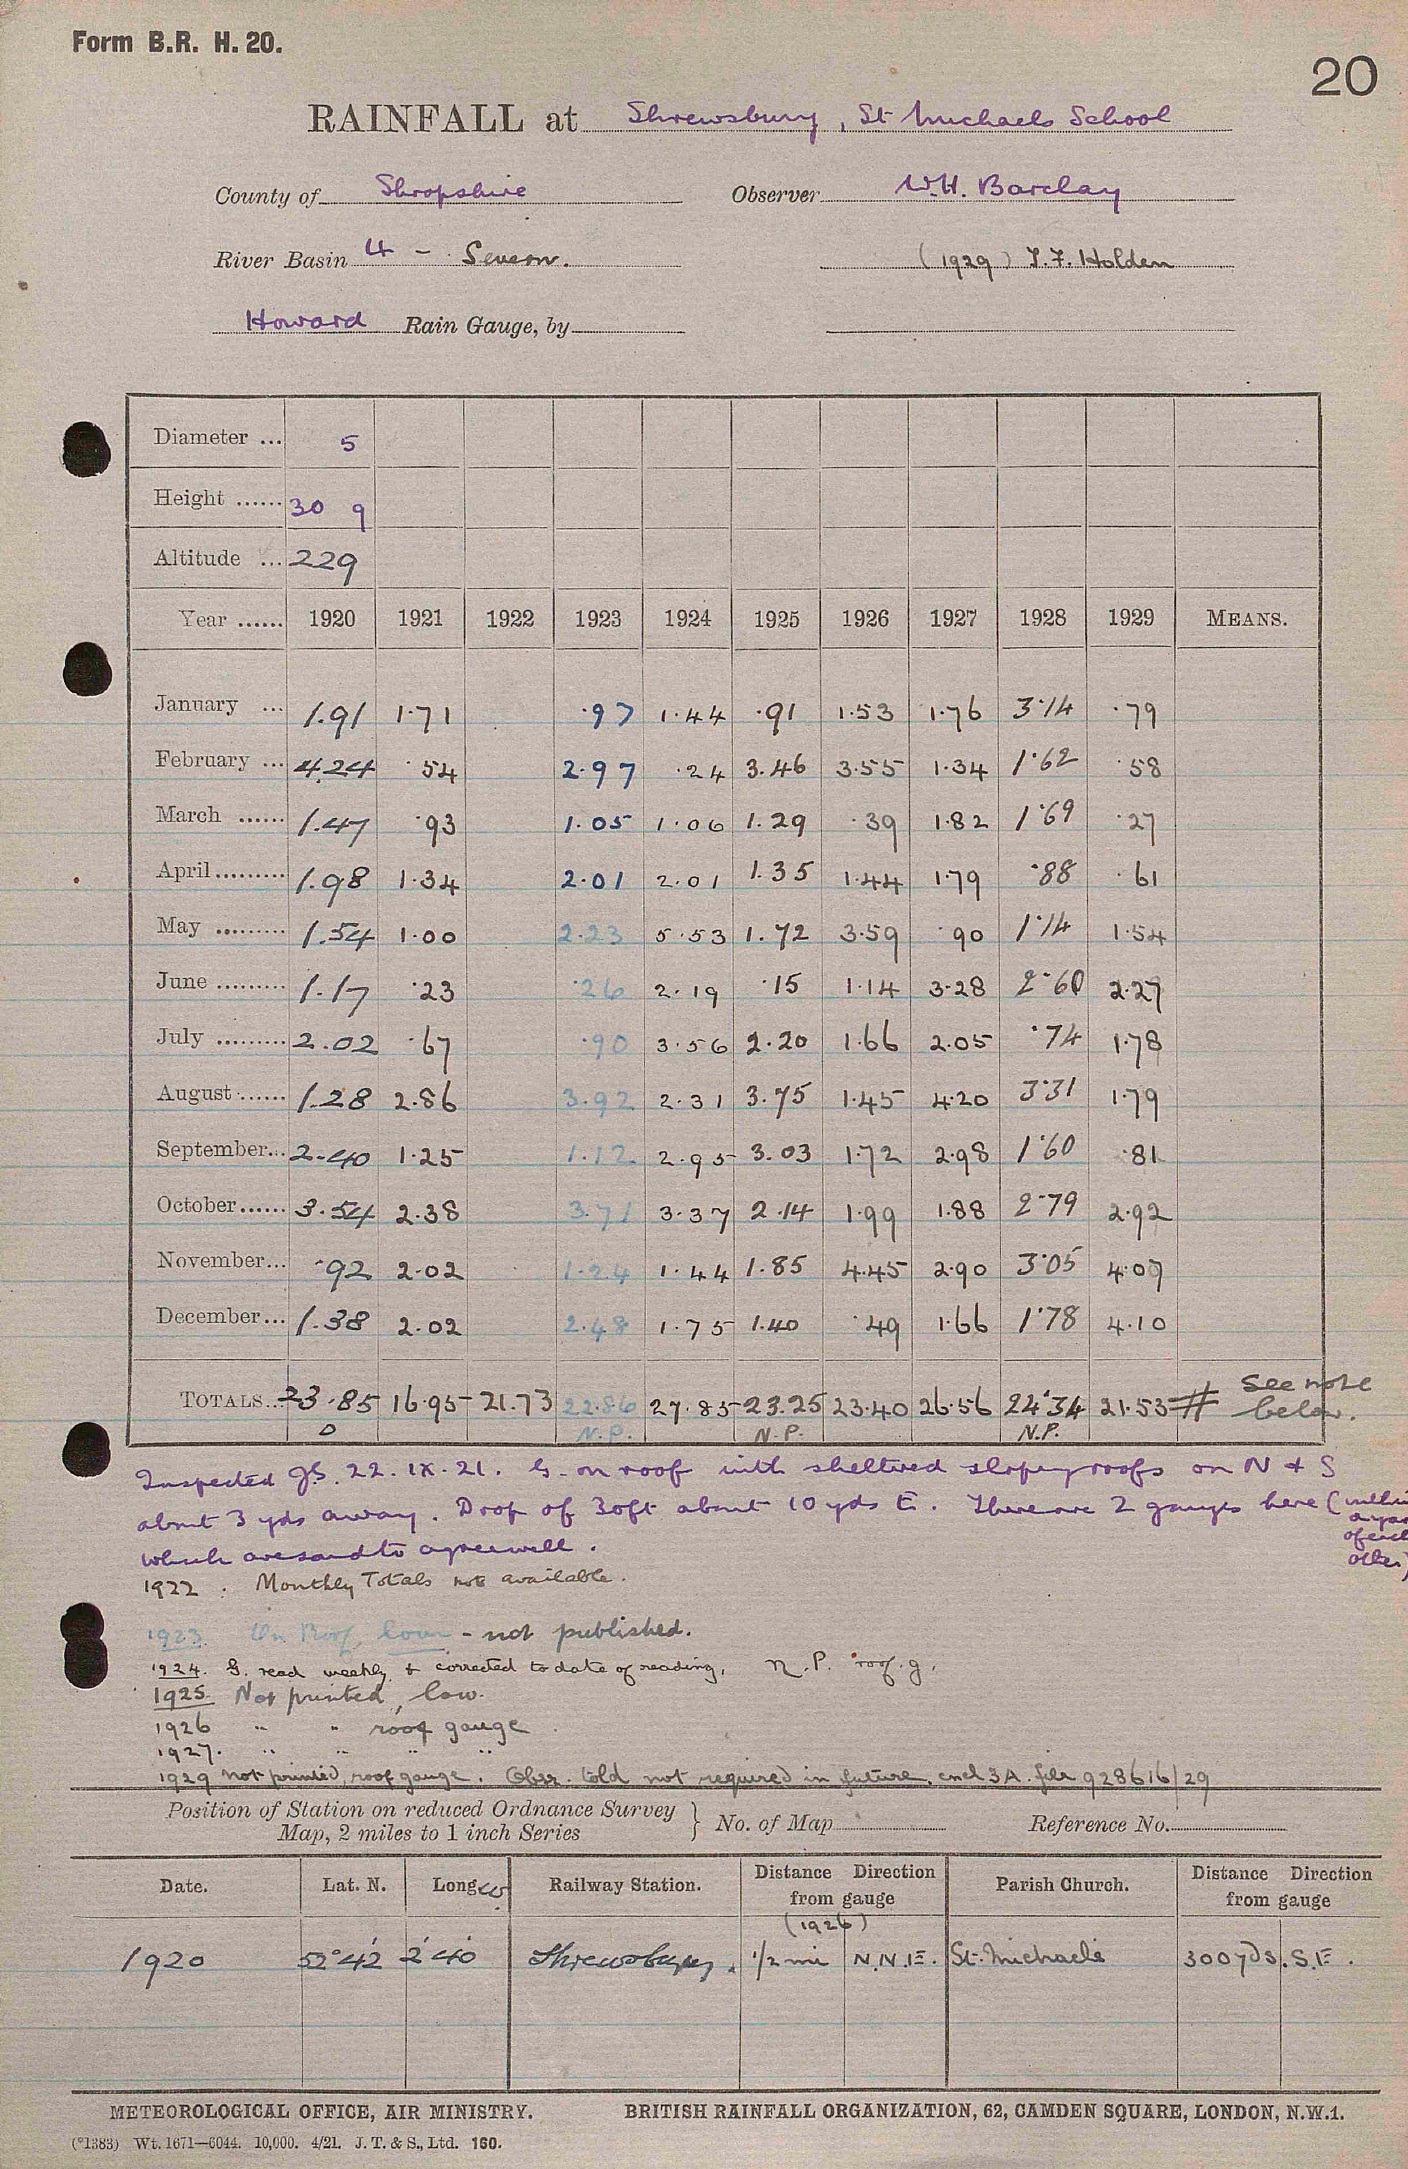 Form B.R. H. 20.
20
RAINFALL at Shrewsbury, St Michaels School
County of Shropshire Observer W.H. Barclay
River Basin 4 - Severn. (1929) T.F. Holden
Howard Rain Gauge, by
Diameter ... 5
Height ...... 30 9
Altitude ... 229
Year ...... 1920 1921 1922 1923 1924 1925 1926 1927 1928 1929 MEANS.
January ... 1.91 1.71 .97 1.44 .91 1.53 1.76 3.14 .79
February ... 4.24 .54 2.97 .24 3.46 3.55 1.34 1.62 .58
March ...... 1.47 .93 1.05 1.06 1.29 .39 1.82 1.69 .27
April ......... 1.98 1.34 2.01 2.01 1.35 1.44 1.79 .88 .61
May ......... 1.54 1.00 2.23 5.53 1.72 3.59 .90 1.14 1.54
June ......... 1.17 .23 .26 2.19 .15 1.14 3.28 2.60 2.27
July ......... 2.02 .67 .90 3.56 2.20 1.66 2.05 .74 1.78
August ...... 1.28 2.86 3.92 2.31 3.75 1.45 4.20 3.31 1.79
September... 2.40 1.25 1.12 2.95 3.03 1.72 2.98 1.60 .81
October...... 3.54 2.38 3.71 3.37 2.14 1.99 1.88 2.79 2.92
November... .92 2.02 1.24 1.44 1.85 4.45 2.90 3.05 4.07
December... 1.38 2.02 2.48 1.75 1.40 .49 1.66 1.78 4.10
TOTALS... 23.85 16.95 21.73 22.86 27.85 23.25 23.40 26.56 22.34 21.53 # see note below.
D N.P. N.P. N.P.
Inspected 22.IX.21. G. on roof with sheltered sloping roofs on N & S
about 3 yds away. Drop of 30ft about 10 yds E. There are 2 gauges here (within a yard of each other)
which are said to agree well.
1922. Monthly Totals not available.
1923. On Roof, low - not published.
1924. G. read weekly & corrected to date of reading. N.P. roof g.
1925. Not printed, low.
1926 " " roof gauge
1927. " " " "
1929 not printed, roof gauge. Obsr. told not required in future. encl 3A. file 928616/29
Position of Station on reduced Ordnance Survey Map, 2 miles to 1 inch Series } No. of Map Reference No.
Date. Lat. N. Long. W. Railway Station. Distance Direction from gauge Parish Church. Distance Direction from gauge
(1926)
1920 52°42' 2°40' Shrewsbury. 1/2 mi N.N.E. St. Michael's 300 yds. S.E.
METEOROLOGICAL OFFICE, AIR MINISTRY. BRITISH RAINFALL ORGANIZATION, 62, CAMDEN SQUARE, LONDON, N.W.1.
(*1383) Wt. 1671—6044. 10,000. 4/21. J. T. & S., Ltd. 160.